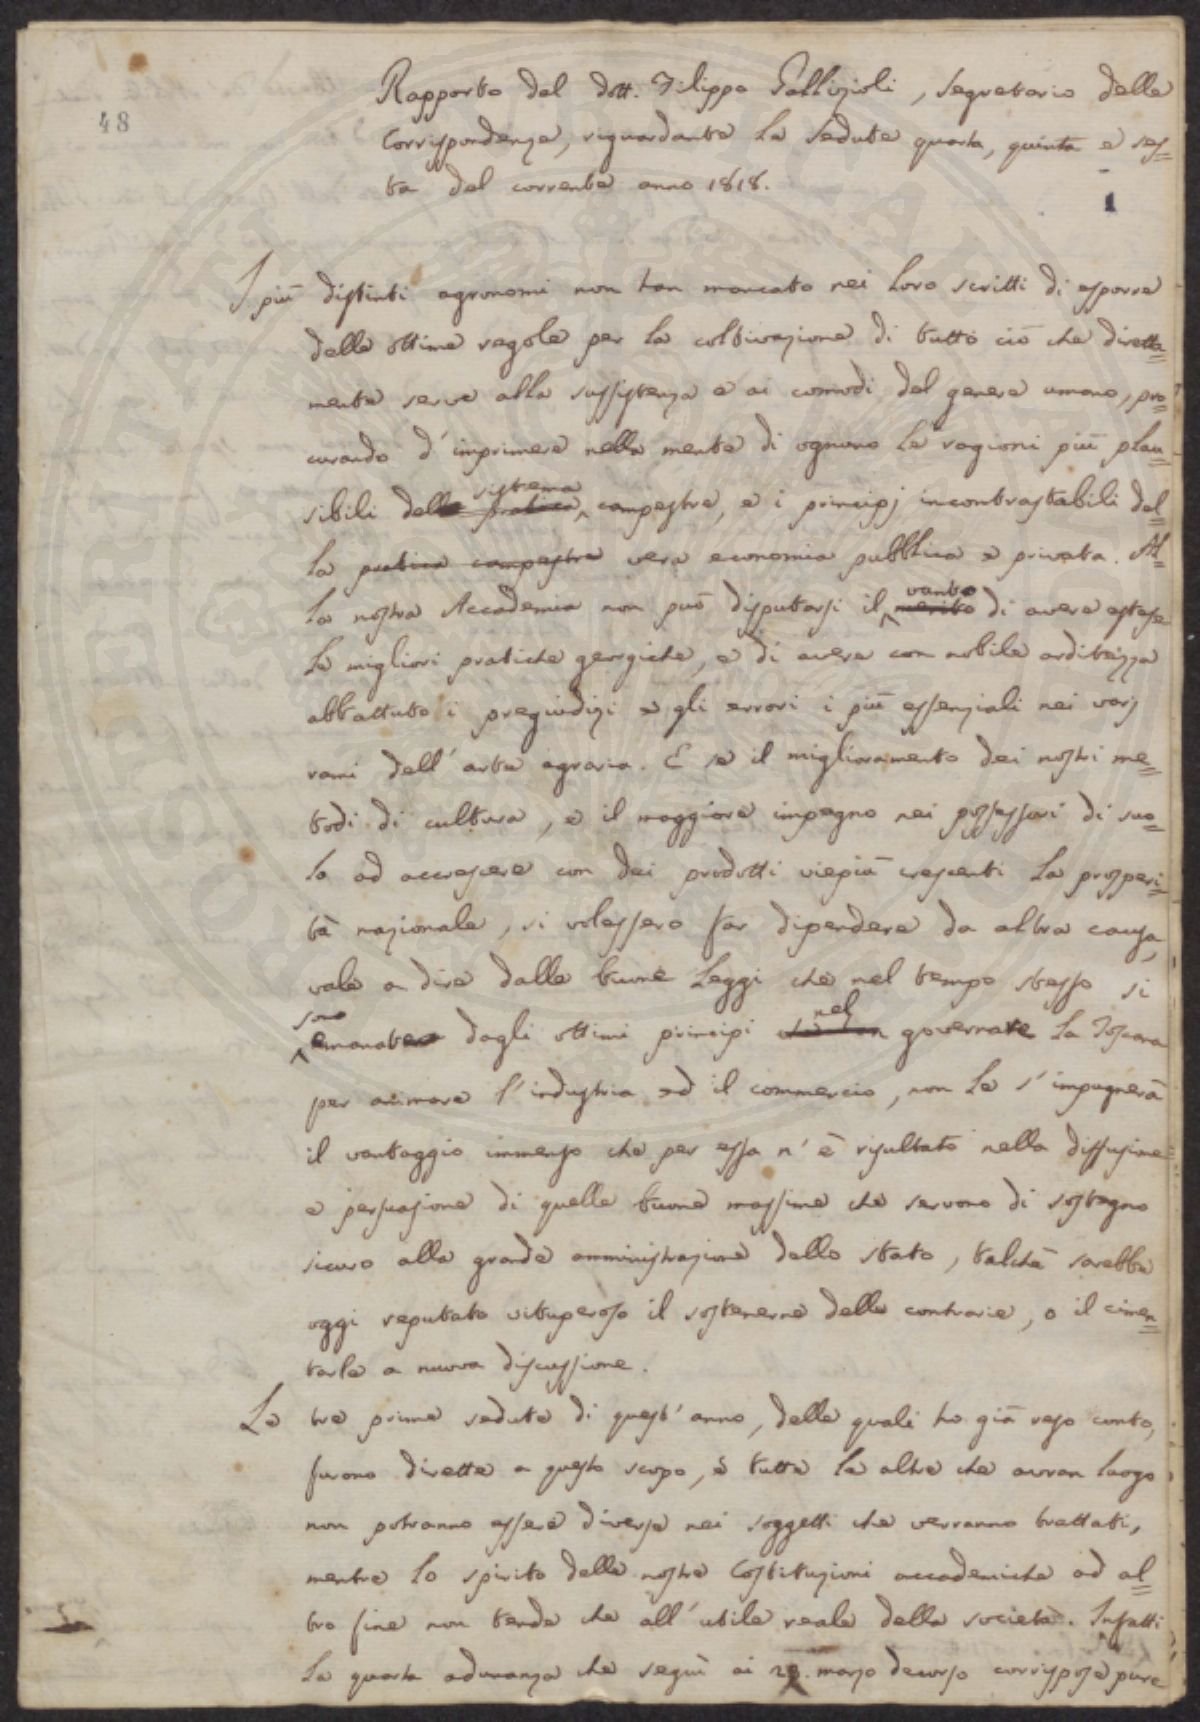 48
Rapporto del dott. Filippo Gallizioli, Segretario delle
Corrispondenze, riguardante le sedute quarta, quinta e ses=
ta del corrente anno 1818.
1
I più distinti agronomi non han mancato nei loro scritti di esporre
delle ottime regole per la coltivazione di tutto ciò che diretta=
mente serve alla sussistenza e ai comodi del genere umano, pro=
curando d'imprimere nella mente di ognuno le ragioni più plau=
sistema
sibili delle pratica campestre, e i principj incontrastabili del=
la pratica campestre vera economia pubblica e privata. Al=
vanto
la nostra Accademia non può disputarsi il merito di avere estese
le migliori pratiche georgiche, e di avere con nobile arditezza
abbattuto i pregiudizi e gli errori i più essenziali nei varj
rami dell'arte agraria. E se il miglioramento dei nostri me=
todi di cultura, e il maggiore impegno nei possessori di suo=
lo ad accrescere con dei prodotti viepiù crescenti la prosperi=
tà nazionale, si volessero far dipendere da altra causa,
vale a dire dalle buone Leggi che nel tempo stesso si
sono nel
emanate dagli ottimi principi governare la Toscana
per animare l'industria ed il commercio, non le s'impugnerà
il vantaggio immenso che per essa n'è risultato nella diffusione
e persuasione di quelle buone massime che servono di sostegno
sicuro alla grande amministrazione dello stato, talchè sarebbe
oggi reputato vituperoso il sostenerne delle contrarie, o il cimen=
tarle a nuova discussione.
Le tre prime sedute di quest'anno, delle quali ho già reso conto,
furono dirette a questo scopo, e tutte le altre che avran luogo
non potranno essere diverse nei soggetti che verranno trattati,
mentre lo spirito delle nostre Costituzioni accademiche ad al=
tro fine non tende che all'utile reale della società. Infatti
la quarta adunanza che seguì ai marzo decorso corrispose pure